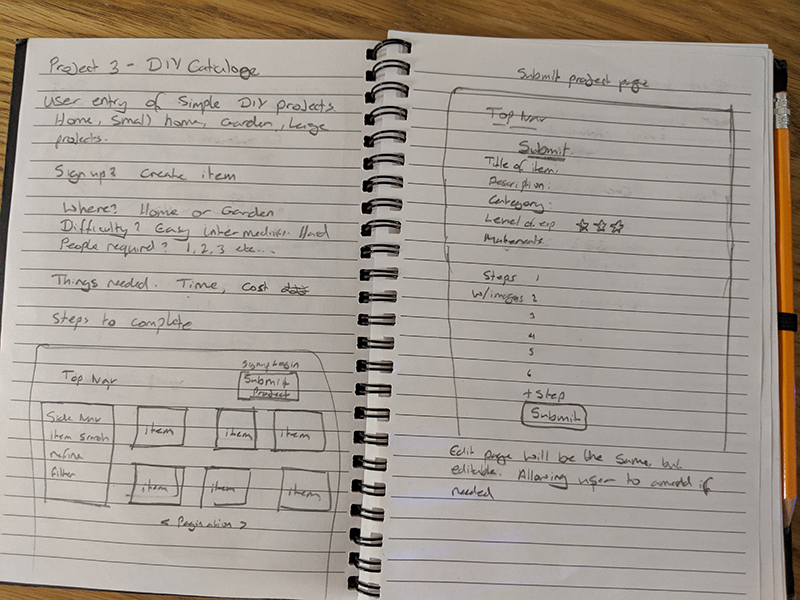 Project 3 - DIY Cataloge
User entry of Simple DIY projects
Home, Small home, Garden, Large
projects.
Sign up? Create item
Where? Home or Garden
Difficulty? Easy Intermediate. Hard
People required? 1, 2, 3 etc...
Things needed. Time, cost
Steps to complete
Signup Login
Top Nav
Submit
Project
Side Nav
item Search
refine
filter
item
item
item
item
item
item
< Pagination >
Submit project page
Top Nav
Submit
Title of item:
Description:
Category:
Level of exp ☆ ☆ ☆
Materials
Steps 1
w/images 2
3
4
5
6
+ Step
Submit
Edit page will be the same, but
editable. Allowing user to amend if
needed